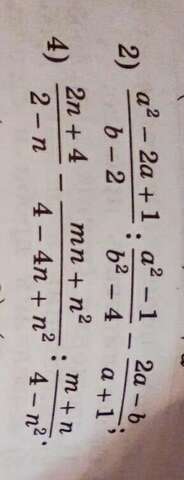 2) \frac{a^2 - 2a + 1}{b - 2} : \frac{a^2 - 1}{b^2 - 4} - \frac{2a - b}{a + 1};
4) \frac{2n + 4}{2 - n} - \frac{mn + n^2}{4 - 4n + n^2} : \frac{m + n}{4 - n^2}.